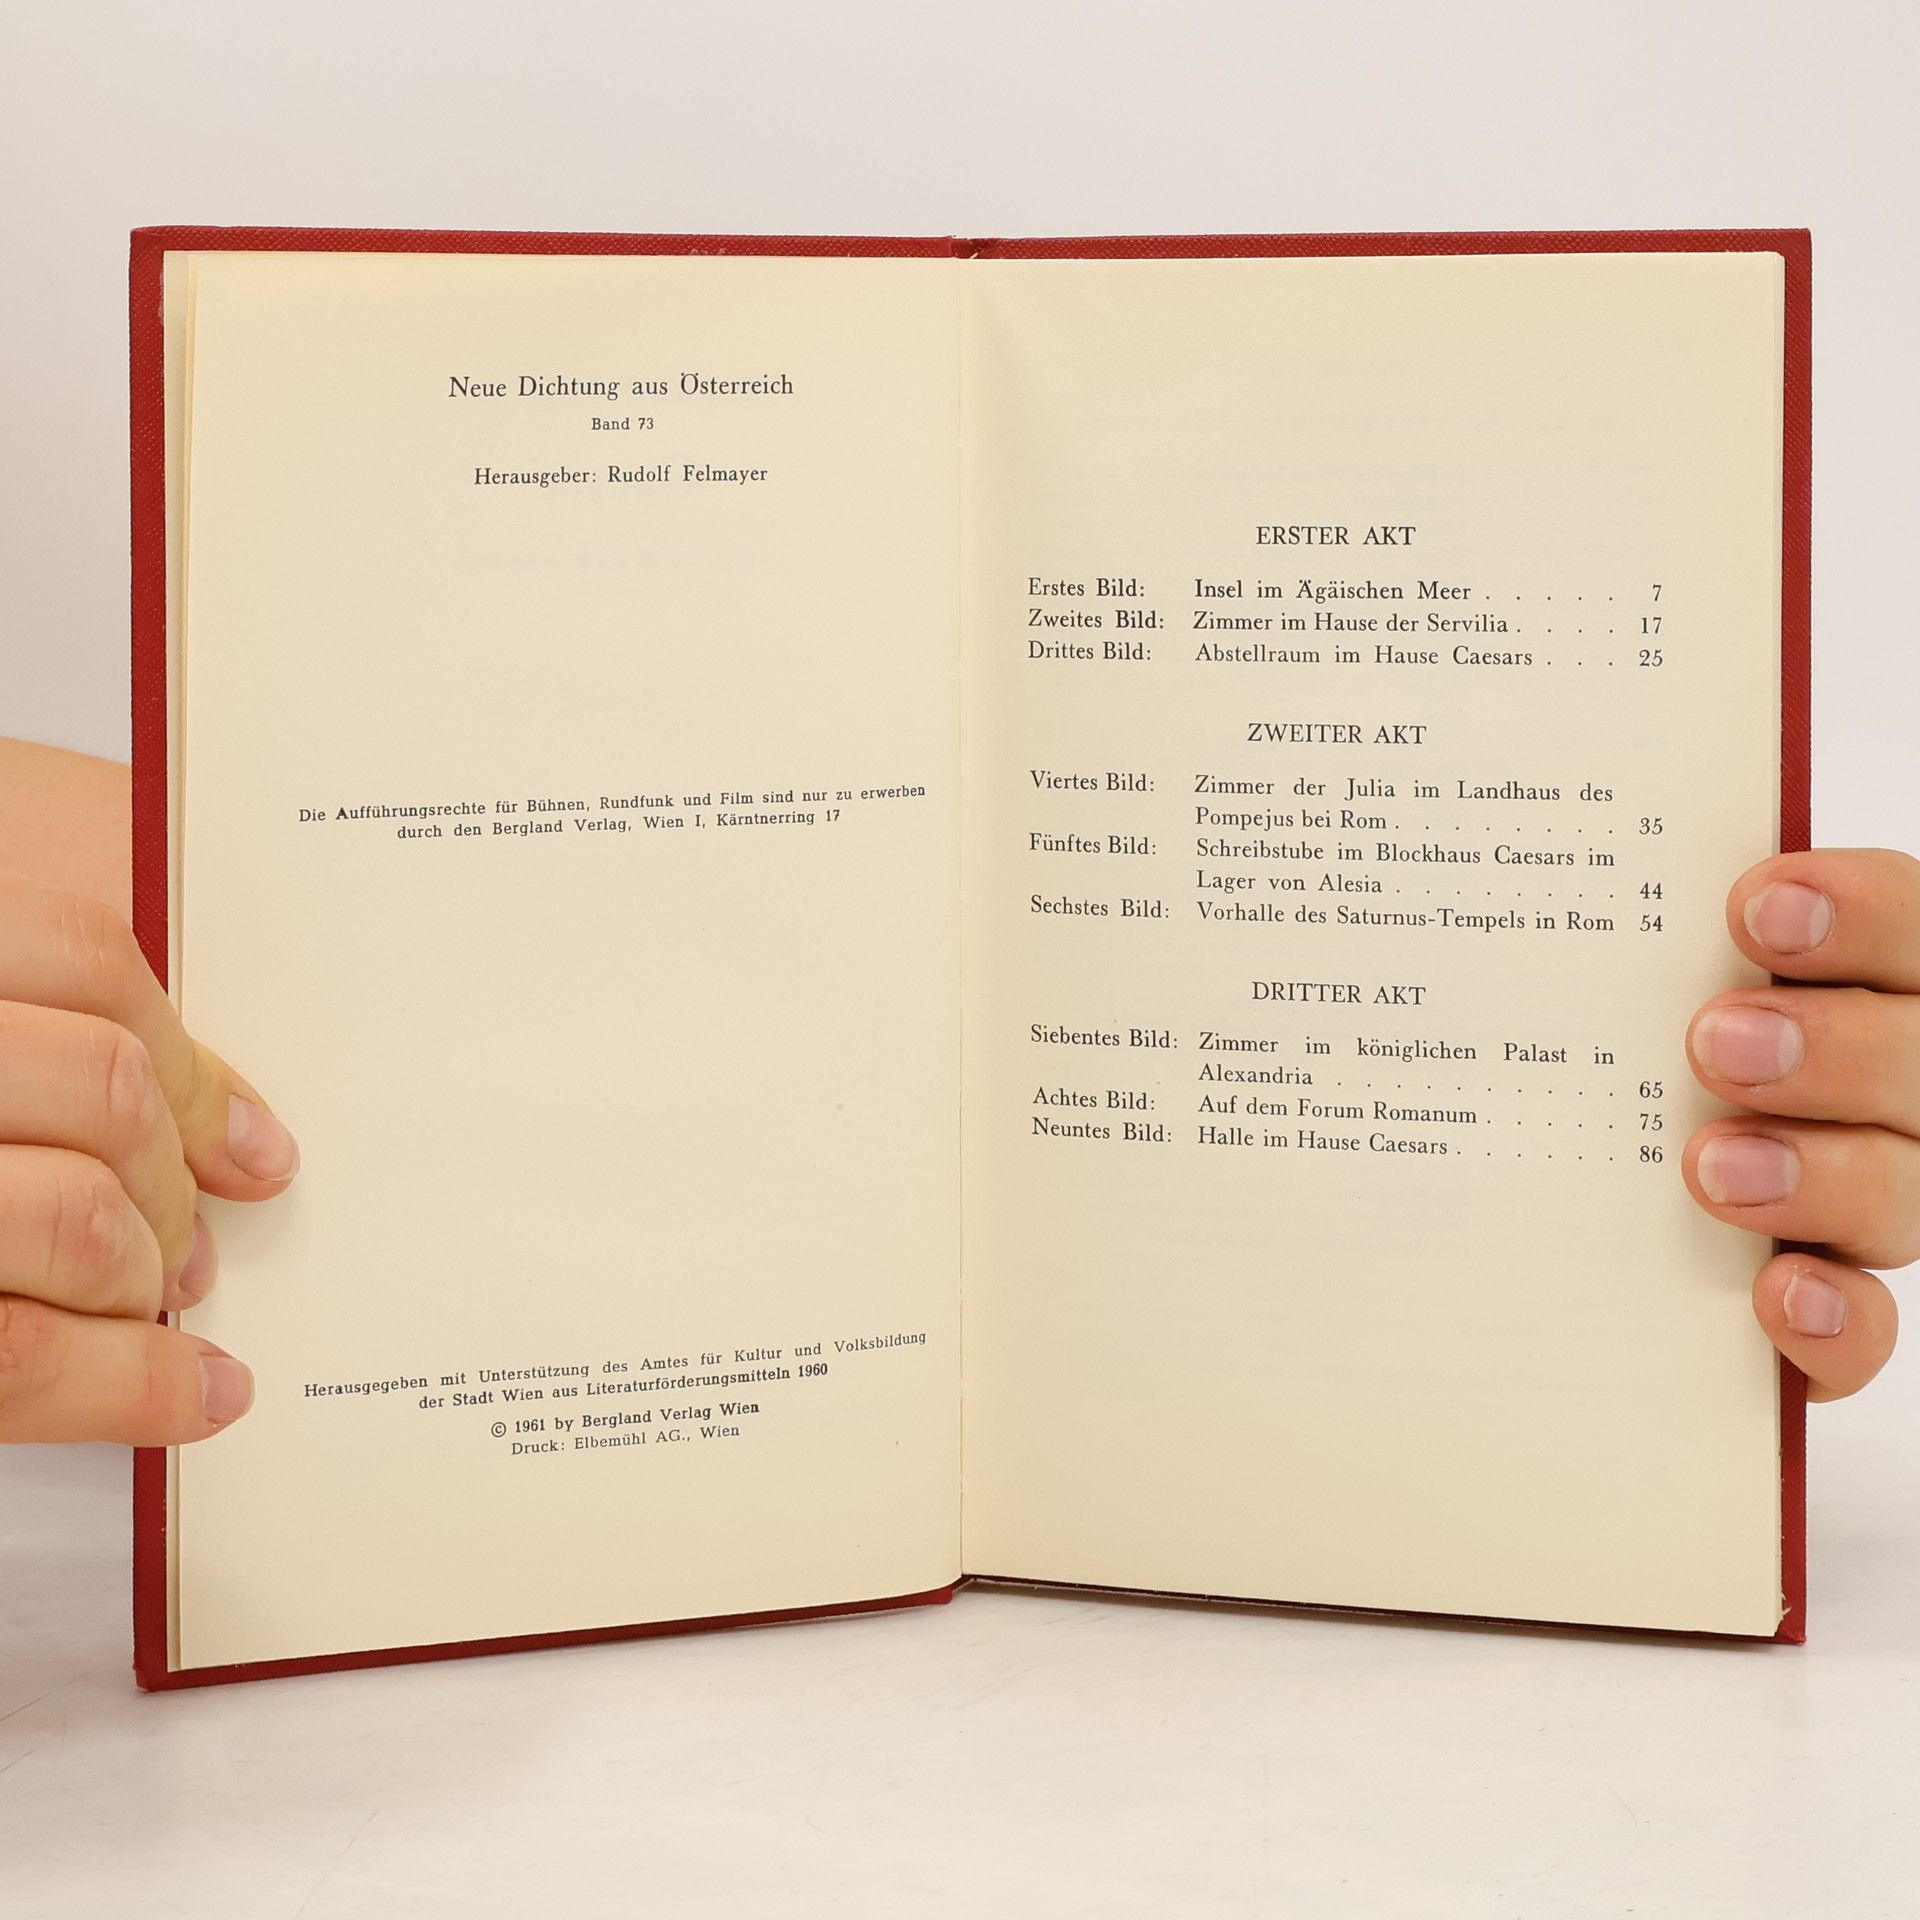 Neue Dichtung aus Österreich
Band 73
Herausgeber: Rudolf Felmayer
Die Aufführungsrechte für Bühnen, Rundfunk und Film sind nur zu erwerben
durch den Bergland Verlag, Wien I, Kärntnerring 17
Herausgegeben mit Unterstützung des Amtes für Kultur und Volksbildung
der Stadt Wien aus Literaturförderungsmitteln 1960
© 1961 by Bergland Verlag Wien
Druck: Elbemühl AG., Wien
ERSTER AKT
Erstes Bild: Insel im Ägäischen Meer . . . . . 7
Zweites Bild: Zimmer im Hause der Servilia . . . . 17
Drittes Bild: Abstellraum im Hause Caesars . . . 25
ZWEITER AKT
Viertes Bild: Zimmer der Julia im Landhaus des
Pompejus bei Rom . . . . . . . . 35
Fünftes Bild: Schreibstube im Blockhaus Caesars im
Lager von Alesia . . . . . . . . 44
Sechstes Bild: Vorhalle des Saturnus-Tempels in Rom 54
DRITTER AKT
Siebentes Bild: Zimmer im königlichen Palast in
Alexandria . . . . . . . . . . 65
Achtes Bild: Auf dem Forum Romanum . . . . . 75
Neuntes Bild: Halle im Hause Caesars . . . . . . 86